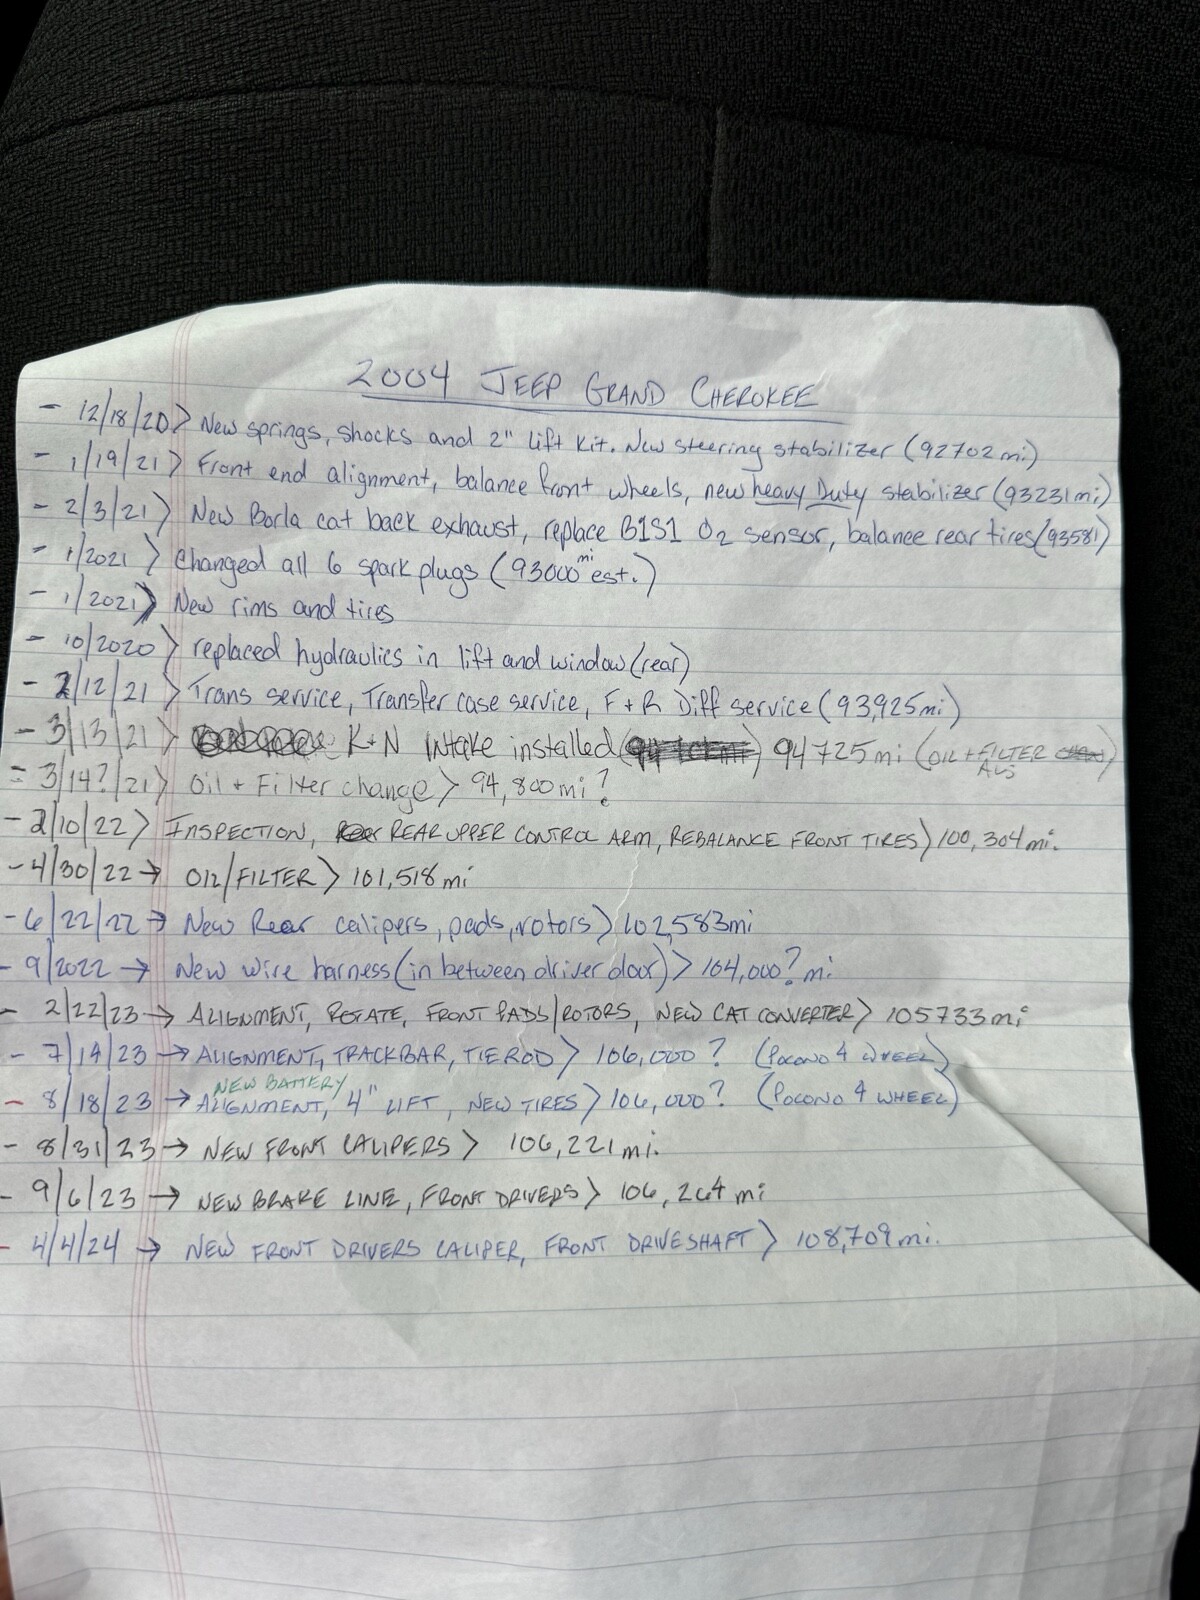 2004 JEEP GRAND CHEROKEE
- 12/18/20> New springs, shocks and 2" lift kit. New steering stabilizer (92702 mi.)
- 1/19/21> Front end alignment, balance front wheels, new heavy Duty stabilizer (93231 mi)
- 2/3/21> New Borla cat back exhaust, replace B1S1 O2 sensor, balance rear tires (93581)
- 1/2021> Changed all 6 spark plugs (93000 mi est.)
- 1/2021> New rims and tires
- 10/2020> replaced hydraulics in lift and window (rear)
- 2/12/21> Trans service, Transfer case service, F + R Diff service (93,925 mi)
- 3/13/21> K+N Intake installed 94725 mi (OIL + FILTER
- 3/14?/21> Oil + Filter change> 94,800 mi?
- 2/10/22> INSPECTION, REAR UPPER CONTROL ARM, REBALANCE FRONT TIRES> 100,304 mi.
- 4/30/22→ OIL/FILTER> 101,518 mi
- 6/22/22→ New Rear calipers, pads, rotors> 102,583 mi
- 9/2022→ New wire harness (in between driver door)> 104,000? mi
- 2/22/23→ ALIGNMENT, ROTATE, FRONT PADS/ROTORS, NEW CAT CONVERTER> 105733 mi
- 7/14/23→ ALIGNMENT, TRACKBAR, TIE ROD> 106,000? (POCONO 4 WHEEL)
NEW BATTERY
- 8/18/23→ ALIGNMENT, 4" LIFT, NEW TIRES> 106,000? (POCONO 4 WHEEL)
- 8/31/23→ NEW FRONT CALIPERS> 106,221 mi.
- 9/6/23→ NEW BRAKE LINE, FRONT DRIVERS> 106,264 mi
- 4/4/24→ NEW FRONT DRIVERS CALIPER, FRONT DRIVESHAFT> 108,709 mi.